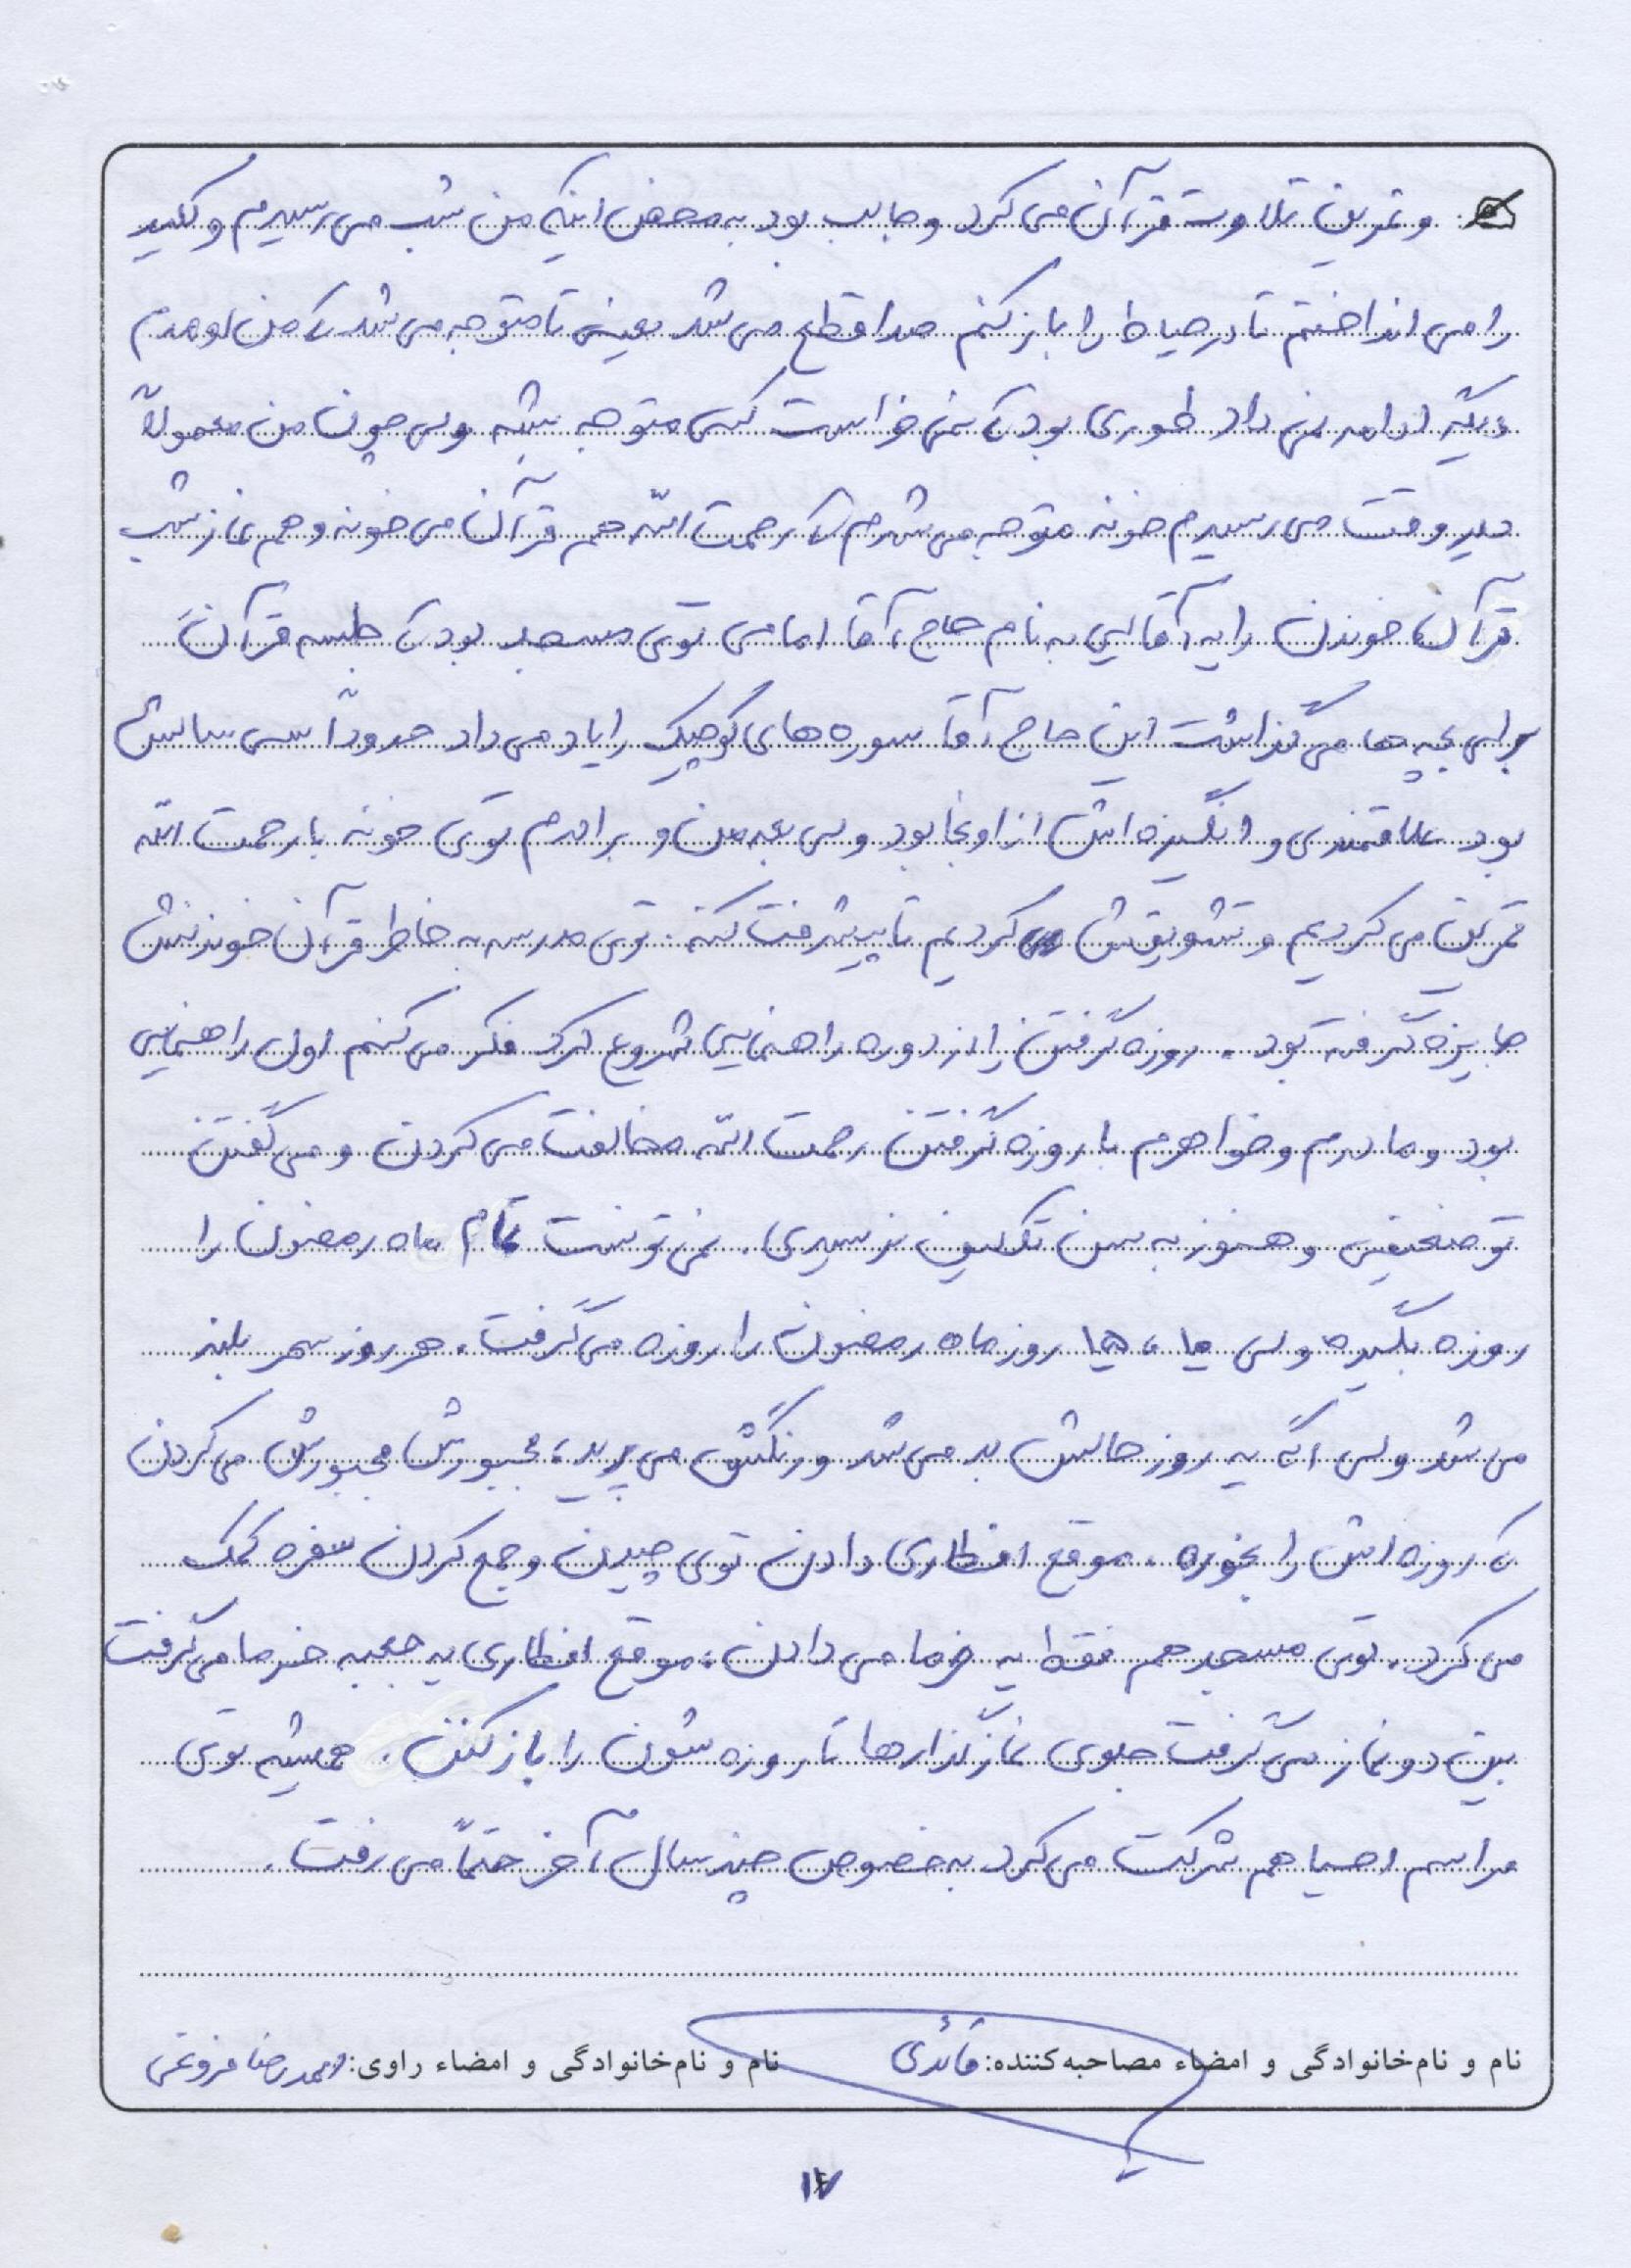 و تمرین تلاوت قرآن می کرد و جالب بود به محض اینکه من شب می رسیدم و کلید
را می انداختم تا در حیاط را باز کنم صدا قطع می شد یعنی تا متوجه می شد که من اومدم
دیگه ادامه نمی داد طوری بود که نمی خواست کسی متوجه بشه ولی چون من معمولاً
دیر وقت می رسیدم خونه متوجه می شدم که رحمت الله هم قرآن می خونه و هم نماز شب
قرآن خوندن را یه آقایی به نام حاج آقا امامی توی مسجد بود که جلسه قرآن
برای بچه ها می گذاشت این حاج آقا سوره های کوچیک را یاد می داد حدوداً سی سالش
بود علاقمندی و انگیزه اش از اونجا بود ولی بعد من و برادرم توی خونه با رحمت الله
تمرین می کردیم و تشویقش می کردیم تا پیشرفت کنه. توی مدرسه به خاطر قرآن خوندنش
جایزه گرفته بود. روزه گرفتن را از دوره راهنمایی شروع کرد فکر می کنم اول راهنمایی
بود و مادرم و خواهرم با روزه گرفتن رحمت الله مخالفت می کردن و می گفتن
تو ضعیفی و هنوز به سن تکلیف نرسیدی. نمی تونست تمام ماه رمضون را
روزه بگیره ولی روز ماه رمضون را روزه می گرفت. هر روز سحر بلند
می شد ولی اگه یه روز حالش بد می شد و رنگش می پرید، مجبورش مجبورش می کردن
که روزه اش را بخوره. موقع افطاری دادن توی چیدن و جمع کردن سفره کمک
می کرد. توی مسجد هم فقط یه خرما می دادن، موقع افطاری یه جعبه خرما می گرفت
بین دو نماز می گرفت جلوی نمازگذارها تا روزه شون را باز کنن. همیشه توی
مراسم احیا هم شرکت می کرد به خصوص چند سال آخر حتماً می رفت.
نام و نام خانوادگی و امضاء مصاحبه کننده: قائدی نام و نام خانوادگی و امضاء راوی: احمدرضا فروتمی
۱۷